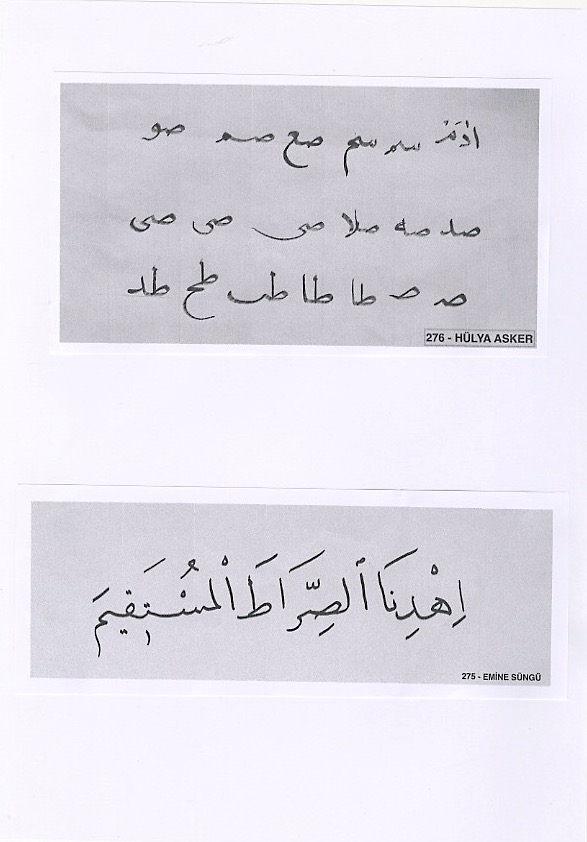 سم سم صع صم صو
صد صه صلا صى صى صى
صر ص طا طا طب طح طد
276 - HÜLYA ASKER
اِهْدِنَا ٱلصِّرَاطَ الْمُسْتَقِيمَ
275 - EMİNE SÜNGÜ